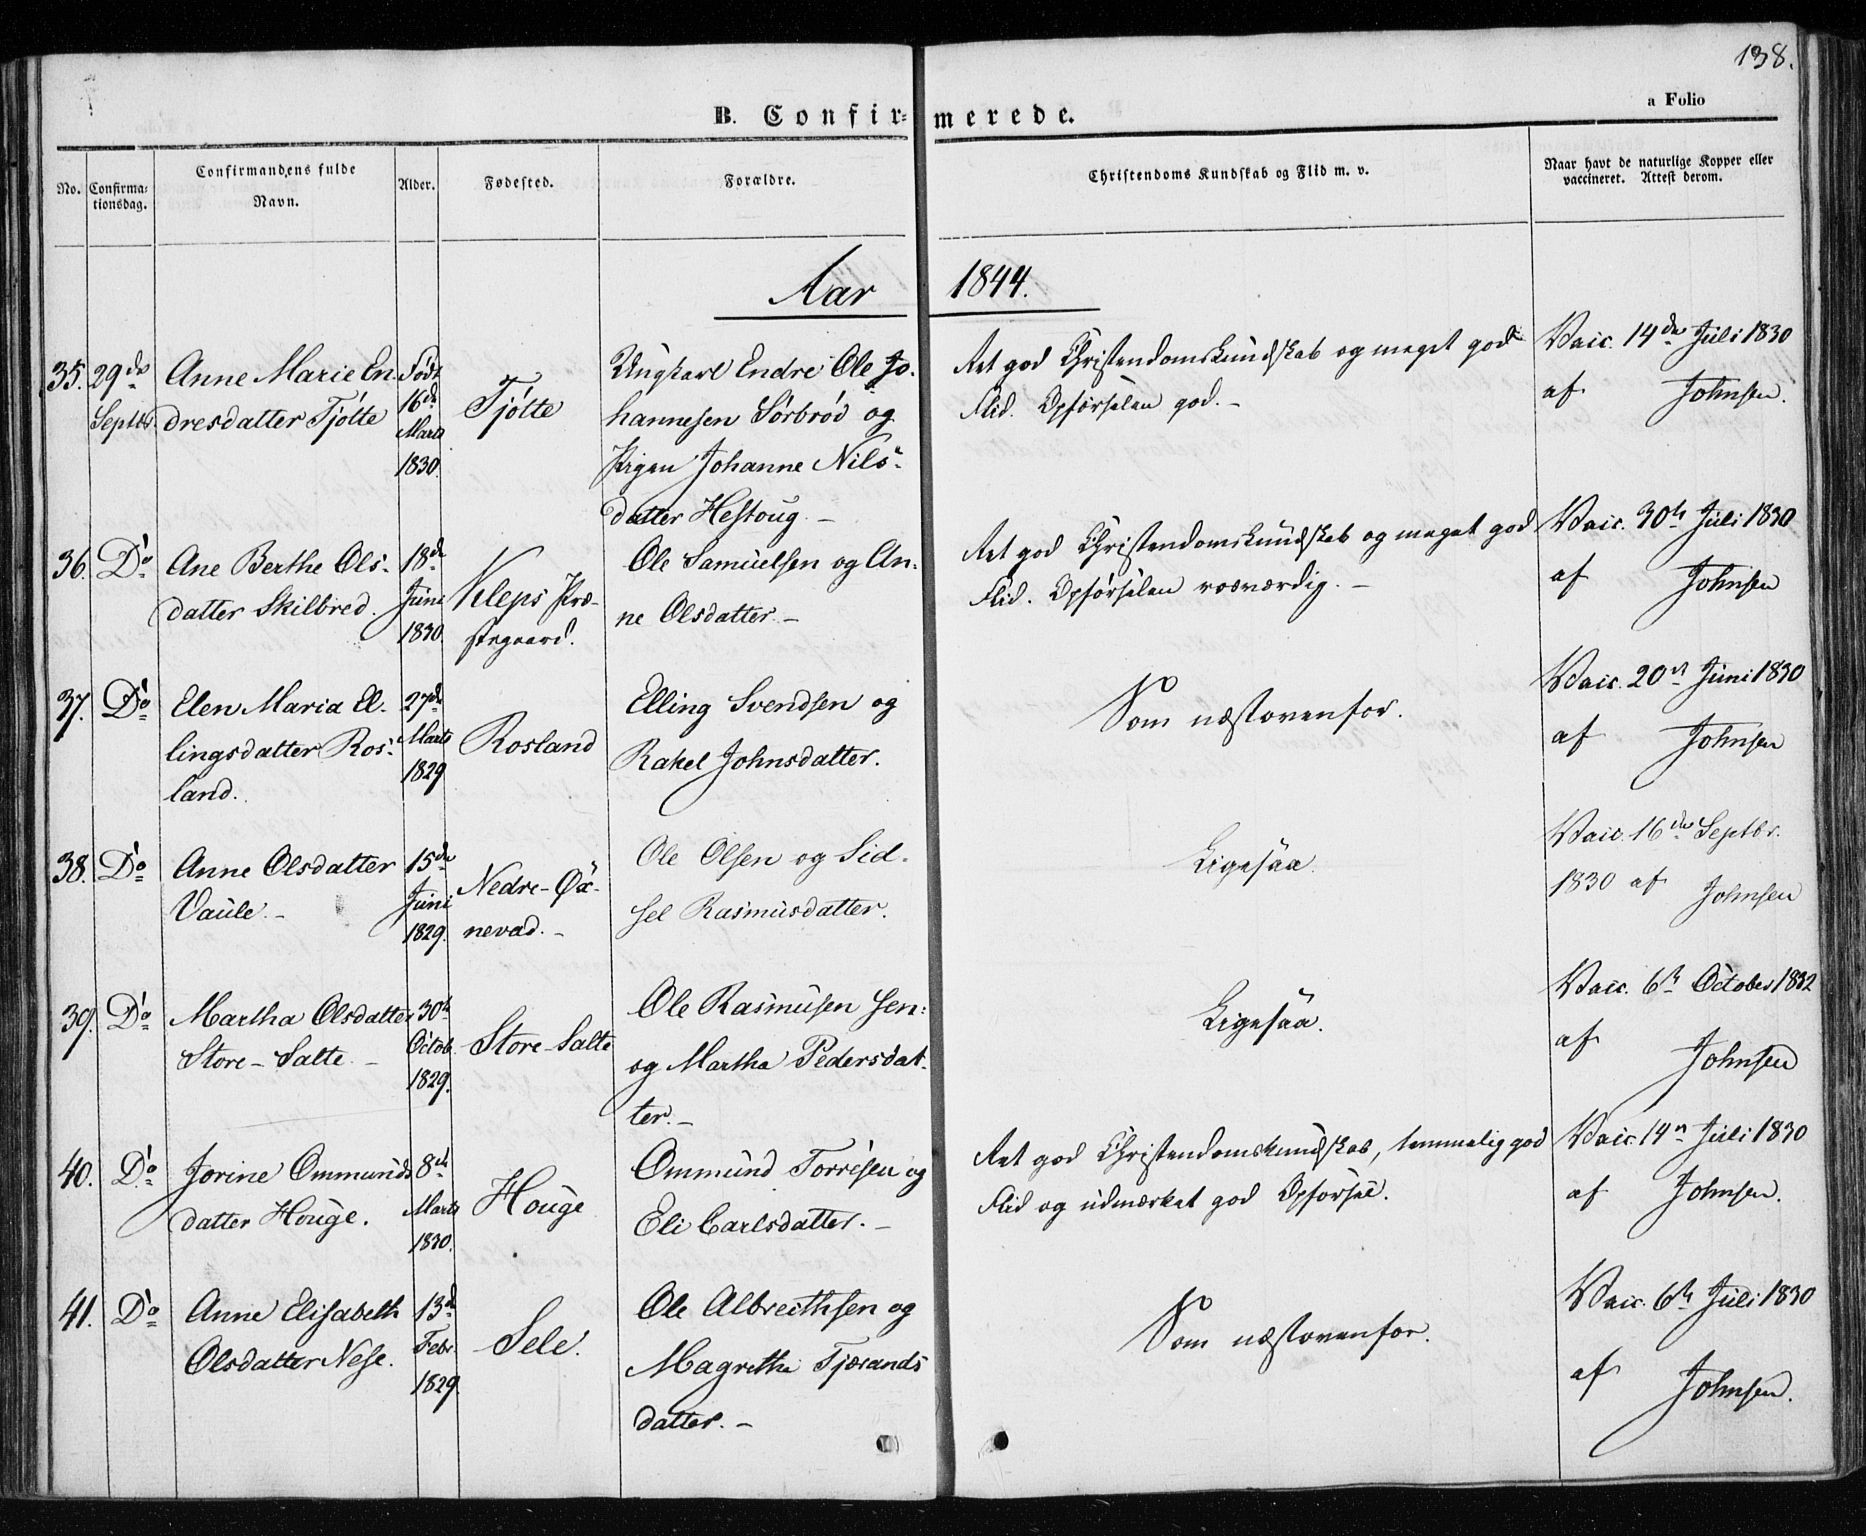 138.
a Folio
B. Confir=merede.
No.
Confirma=
tionsdag.
Confirmandens fulde
Navn.
Alder.
Fødested.
Forældre.
Christendoms Kundskab og Flid m. v.
Naar havt de naturlige Kopper eller
vaccineret. Attest derom.
Aar 1844.
35.
29de
Septbr.
Anne Marie En-
dresdatter Tjötte
Født
16de
Marts
1830.
Tjötte
Ungkarl Endre Ole Jo-
hannesen Sörbröd og
Pigen Johanne Nils-
datter Hestoug. -
Ret god Christendomskundskab og meget god
Flid. Opförselen god. -
Vaic. 14de Juli 1830
af Johnsen.
36.
Do
Ane Berthe Ols-
datter Skilbred.
18de
Juni
1830.
Kleps Præ-
stegaard.
Ole Samuelsen og An-
ne Olsdatter. -
Ret god Christendomskundskab og meget god
Flid. Opförselen roesværdig. -
Vaic. 30te Juli 1830
af Johnsen
37.
Do
Elen Maria El-
lingsdatter Ros-
land.
27de
Marts
1829
Rosland
Elling Svendsen og
Rakel Johnsdatter.
Som næstovenfor.
Vaic. 20de Juni 1830
af Johnsen
38.
Do
Anne Olsdatter
Vaule. -
15de
Juni
1829.
Nedre-Öx-
nevad. -
Ole Olsen og Sid-
sel Rasmusdatter.
Ligesaa.
Vaic. 16de Septbr.
1830 af Johnsen
39.
Do
Martha Olsdatter
Store-Salte. -
30te
Octob.
1829.
Store-Salte
Ole Rasmusen sen:
og Martha Pedersdat-
ter. -
Ligesaa.
Vaic. 6te October 1832
af Johnsen
40.
Do
Jorine Ommunds
datter Houge.
8de
Marts
1830.
Houge
Ommund Torrisen og
Eli Carlsdatter. -
Ret god Christendomskundskab, temmelig god
Flid og udmærket god Opforsel.
Vaic. 14de Juli 1830
af Johnsen.
41.
Do
Anne Elisabeth
Olsdatter Nese.
13de
Febr.
1829
Sele.
Ole Albreithsen og
Magrethe Tjærands
datter. -
Som næstovenfor.
Vaic. 6te Juli 1830
af Johnsen.